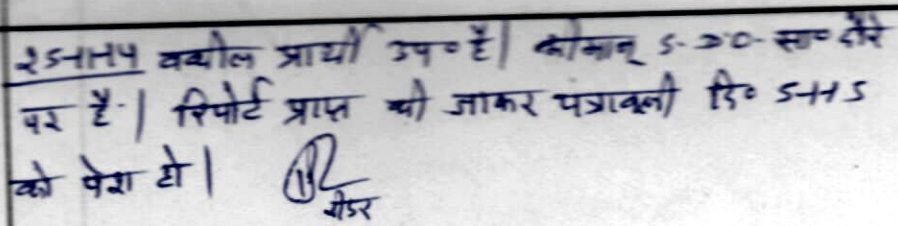 25-11-14 वकील प्रार्थी उप० है। श्रीमान् S.D.O. सा० दौरे
पर है। रिपोर्ट प्राप्त की जाकर पत्रावली दि० 5-1-15
को पेश हो।
रीडर